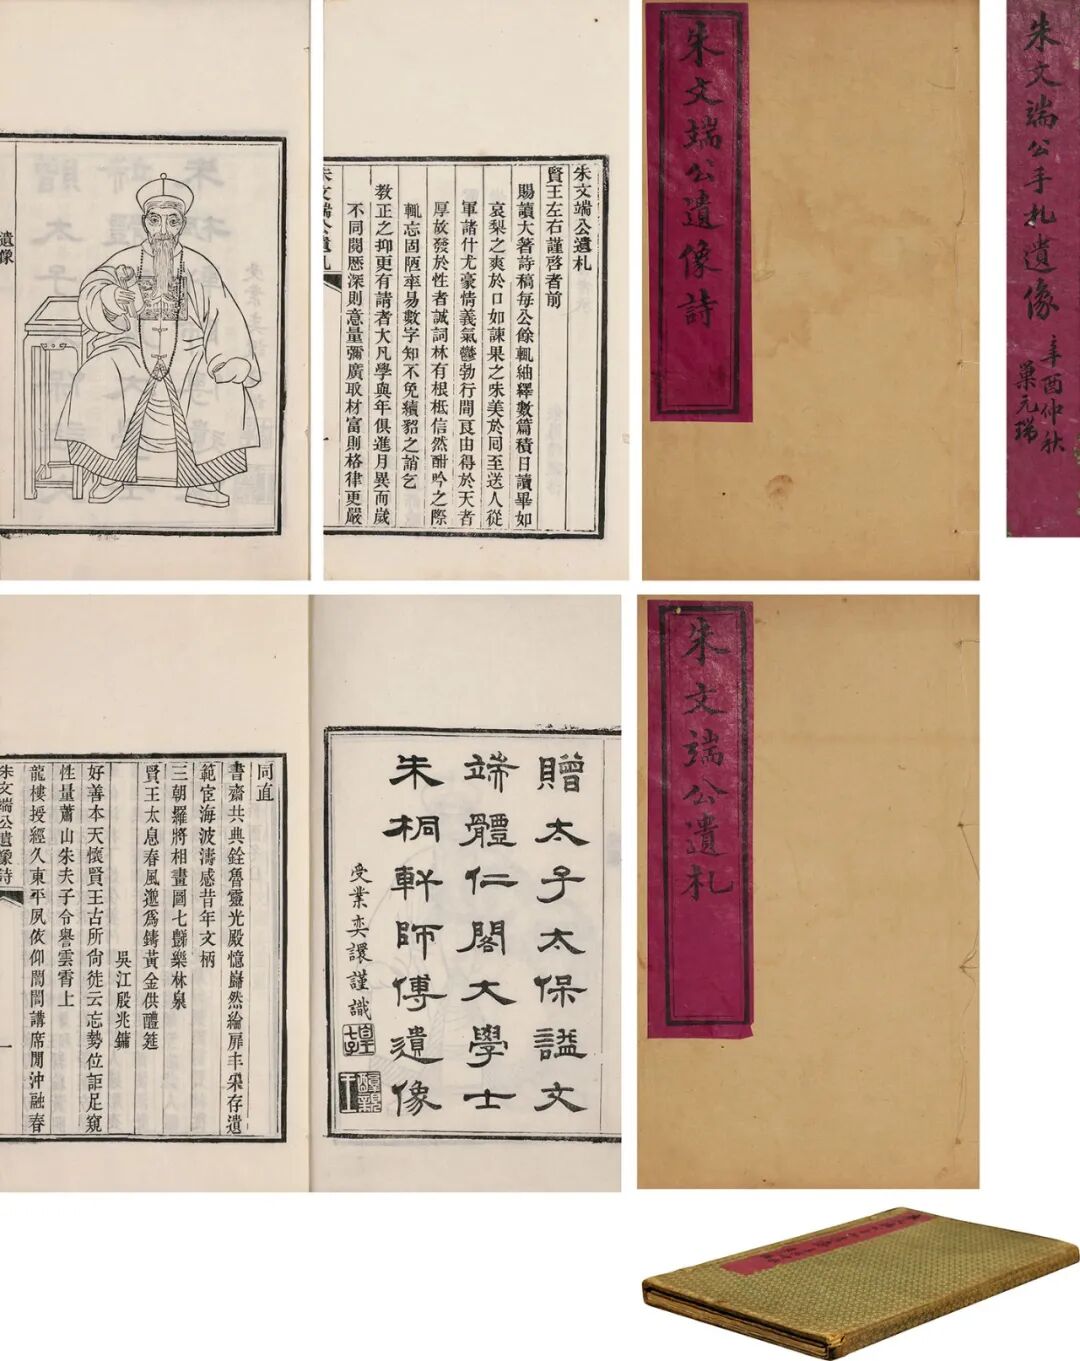 遺像
朱文端公遺札
賢王左右謹啓者前
賜讀大著詩稿每公餘輒紬釋數篇積日讀畢如
哀梨之爽於口如諫果之味美於囘至送人從
軍諸什尤豪情義氣鬱勃行間良由得於天者
厚故發於性者誠詞林有根柢信然酣吟之際
輒忘固陋率易數字知不免續貂之誚乞
教正之抑更有請者大凡學與年俱進月異而歲
不同閱歷深則意量彌廣取材富則格律更嚴
朱文端公遺札
一
朱文端公遺像詩
朱文端公手札遺像
辛酉仲秋
巢元瑞
同直
書齋共典銓魯靈光殿憶巋然綸扉丰采存遺
範宦海波濤感昔年文柄
三朝羅將相畫圖七豑樂林泉
賢王太息春風邈爲鑄黃金供醴筵
吳江殷兆鏞
好善本天懷賢王古所尙徒云忘勢位詎足窺
性量蕭山朱夫子令譽雲霄上
龍樓授經久東平夙依仰誾誾講席閒沖融春
朱文端公遺像詩
一
贈太子太保謚文
端體仁閣大學士
朱桐軒師傅遺像
受業奕譞謹識
皇七子
朱文端公遺札